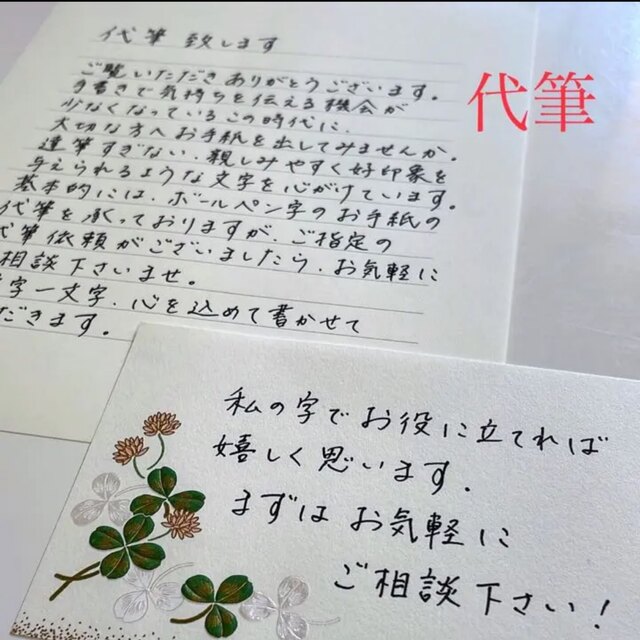 代筆 致します
ご覧いただきありがとうございます。
手書きで気持ちを伝える機会が
少なくなっているこの時代に、
大切な方へお手紙を出してみませんか。
達筆すぎない、親しみやすく好印象を
与えられるような文字を心がけています。
基本的には、ボールペン字のお手紙の
代筆を承っておりますが、ご指定の
代筆依頼がございましたら、お気軽に
相談下さいませ。
字一文字、心を込めて書かせて
だきます。
代筆
私の字でお役に立てれば
嬉しく思います.
まずはお気軽に
ご相談下さい!